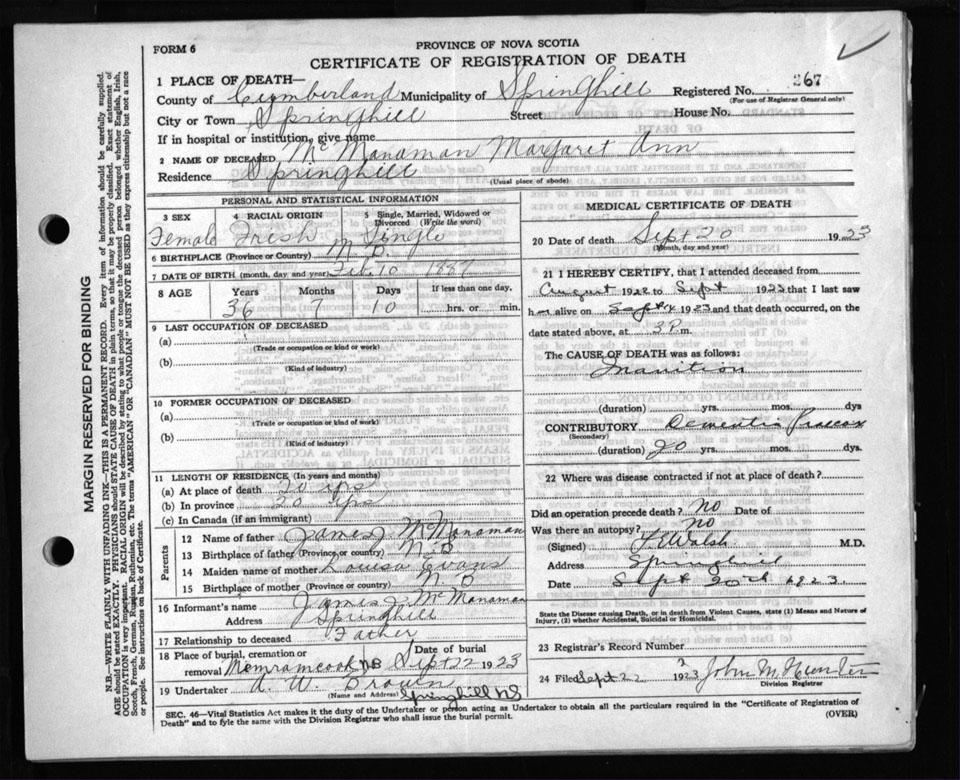 FORM 6
PROVINCE OF NOVA SCOTIA
CERTIFICATE OF REGISTRATION OF DEATH
1 PLACE OF DEATH—
County of Cumberland Municipality of Springhill Registered No. 267
(For use of Registrar General only)
City or Town Springhill Street House No.
If in hospital or institution, give name
2 NAME OF DECEASED McManaman Margaret Ann
Residence Springhill
(Usual place of abode)
PERSONAL AND STATISTICAL INFORMATION
3 SEX 4 RACIAL ORIGIN 5 Single, Married, Widowed or Divorced (Write the word)
Female Irish Single
6 BIRTHPLACE (Province or Country) N.B.
7 DATE OF BIRTH (month, day and year) Feb 10 1887
8 AGE Years Months Days If less than one day,
36 7 10 hrs. or min.
9 LAST OCCUPATION OF DECEASED
(a)
(Trade or occupation or kind or work)
(b)
(Kind of industry)
10 FORMER OCCUPATION OF DECEASED
(a)
(Trade or occupation or kind of work)
(b)
(Kind of industry)
11 LENGTH OF RESIDENCE (In years and months)
(a) At place of death 20 yrs
(b) In province 20 yrs
(c) In Canada (if an immigrant)
Parents
12 Name of father James J McManaman
13 Birthplace of father (Province or country) N.B
14 Maiden name of mother Louisa Evans
15 Birthplace of mother (Province or country) N B
16 Informant's name James J McManaman
Address Springhill
17 Relationship to deceased Father
18 Place of burial, cremation or removal Memramcook NB Date of burial Sept 22 1923
19 Undertaker A. W. Brown
(Name and Address) Springhill NS
MEDICAL CERTIFICATE OF DEATH
20 Date of death Sept 20 1923
(Month, day and year)
21 I HEREBY CERTIFY, that I attended deceased from
August 1922 to Sept 1923 that I last saw
her alive on Sept 1923 and that death occurred, on
date stated above, at 3 P m.
The CAUSE OF DEATH was as follows:
Inanition
(duration) yrs. mos. dys
CONTRIBUTORY Dementia Praecox
(Secondary)
(duration) 20 yrs. mos. dys.
22 Where was disease contracted if not at place of death?
Did an operation precede death? No Date of
Was there an autopsy? No
(Signed) J. Walsh M.D.
Address Springhill
Date Sept 20th 1923
State the Disease causing Death, or in death from Violent Causes, state (1) Means and Nature of Injury, (2) whether Accidental, Suicidal or Homicidal.
23 Registrar's Record Number
24 Filed Sept 22 1923 John M Hunter
Division Registrar
SEC. 46—Vital Statistics Act makes it the duty of the Undertaker or person acting as Undertaker to obtain all the particulars required in the "Certificate of Registration of
Death" and to fyle the same with the Division Registrar who shall issue the burial permit.
(OVER)
MARGIN RESERVED FOR BINDING
N.B.—WRITE PLAINLY WITH UNFADING INK—THIS IS A PERMANENT RECORD. Every item of information should be carefully supplied.
AGE should be stated EXACTLY. PHYSICIANS should STATE CAUSE OF DEATH in plain terms, so that it may be properly classified. Exact statement of
OCCUPATION is very important. RACIAL ORIGIN will be described by stating to what people or tongue the deceased person belonged whether English, Irish,
Scotch, French, German, Russian, Ruthenian, etc. The terms "AMERICAN" OR "CANADIAN" MUST NOT BE USED as they express citizenship but not a race
or people. See instructions on back of Certificate.